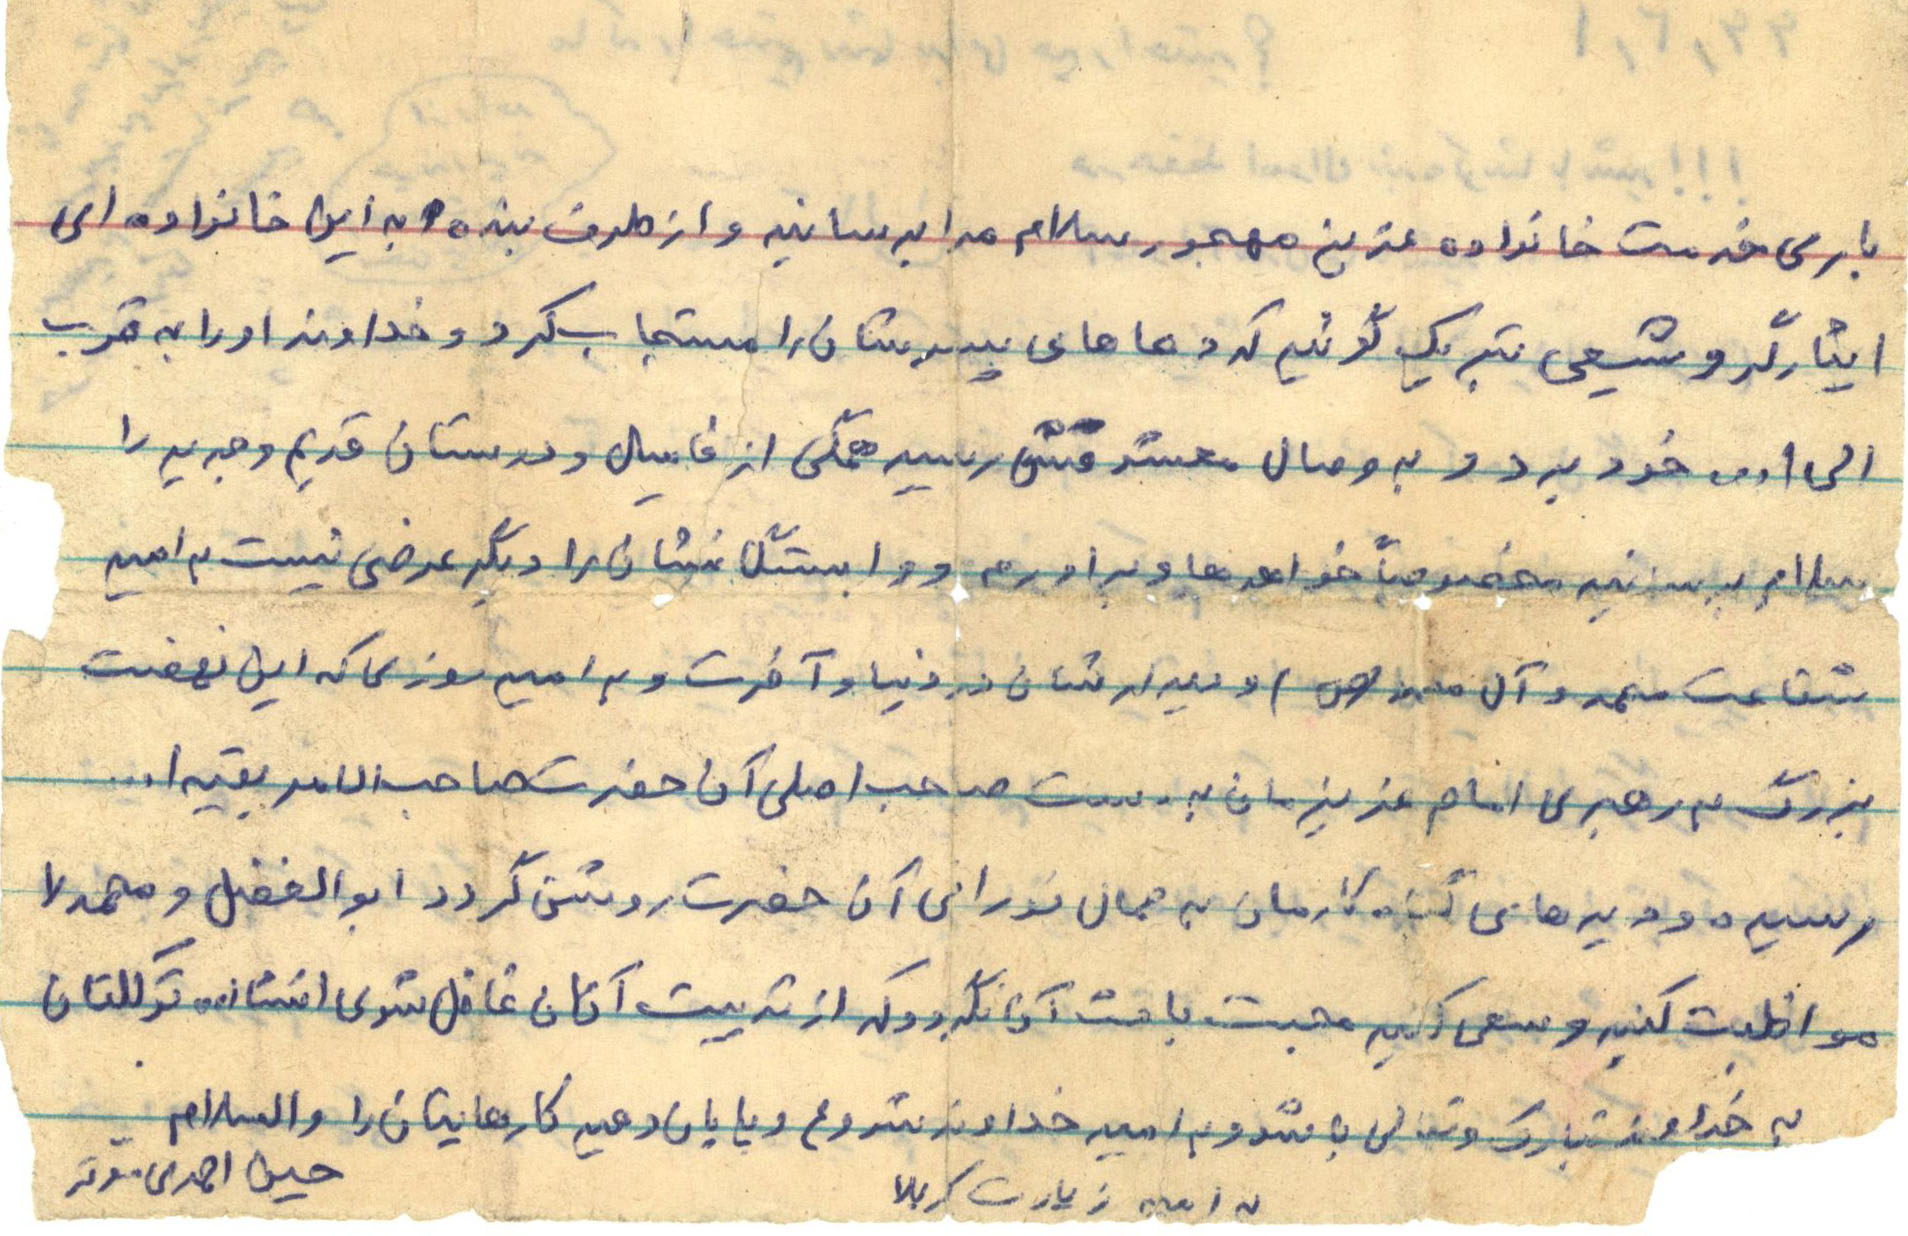 باری خدمت خانواده عزیز مهجور سلام مرا برسانید و از طرف بنده به این خانواده ای
ایثارگر و شیعی تبریک گوئیم که دعاهای پسرشان را مستجاب کرد و خداوند او را به قرب
الی ا... خود برد و به وصال معشوقش رسید همگی از فامیل و دوستان قدیم و جدید را
سلام برسانید مخصوصاً خواهرها و برادرم و وابستگانشان را دیگر عرضی نیست به امید
شفاعت محمد و آل محمد (ص) و دیدارشان در دنیا و آخرت و به امید روزی که این نهضت
بزرگ به رهبری امام عزیزمان به دست صاحب اصلی آن حضرت صاحب الامر بقیه ا...
رسیده و دیدهای گناه کارمان به جمال نورانی آن حضرت روشن گردد ابوالفضل و محمد را
مواظبت کنید و سعی کنید محبت باعث آن نگردد که از تربیت آنان غافل شوی انشاا... توکلتان
به خداوند تبارک و تعالی باشد و به امید خداوند شروع و پایان دهید کارهایتان را والسلام
به امید زیارت کربلا
حسین احمدی